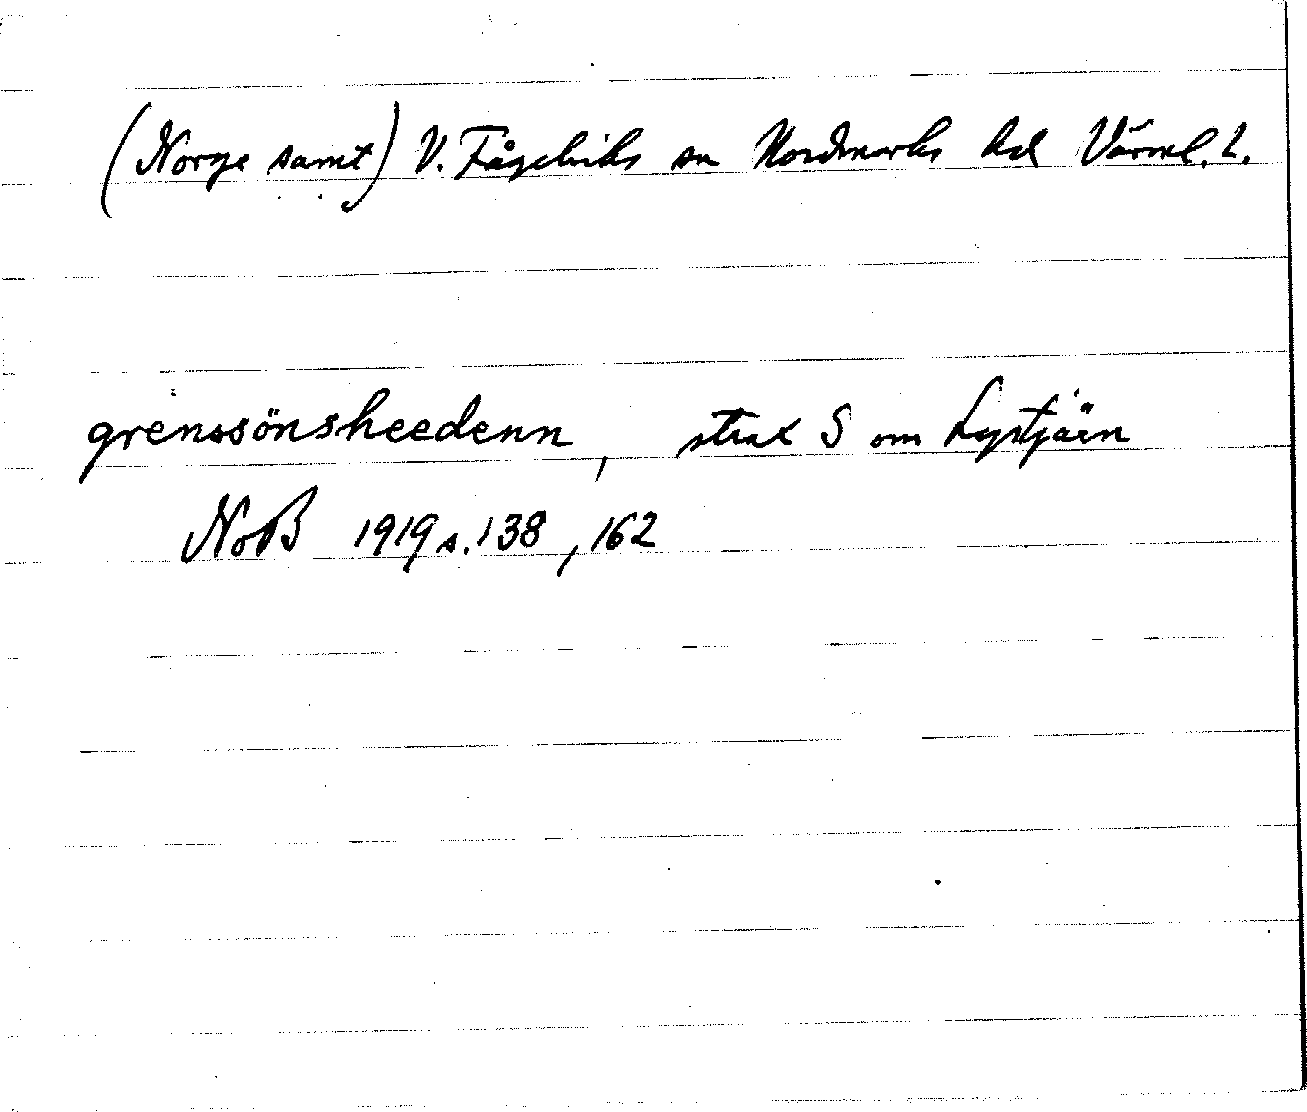 (Norge samt) V. Fågelviks sn Nordmarks hd Värml. l.
grenssönsheedenn, strax S om Lystjärn
NoB 1919 s. 138, 162